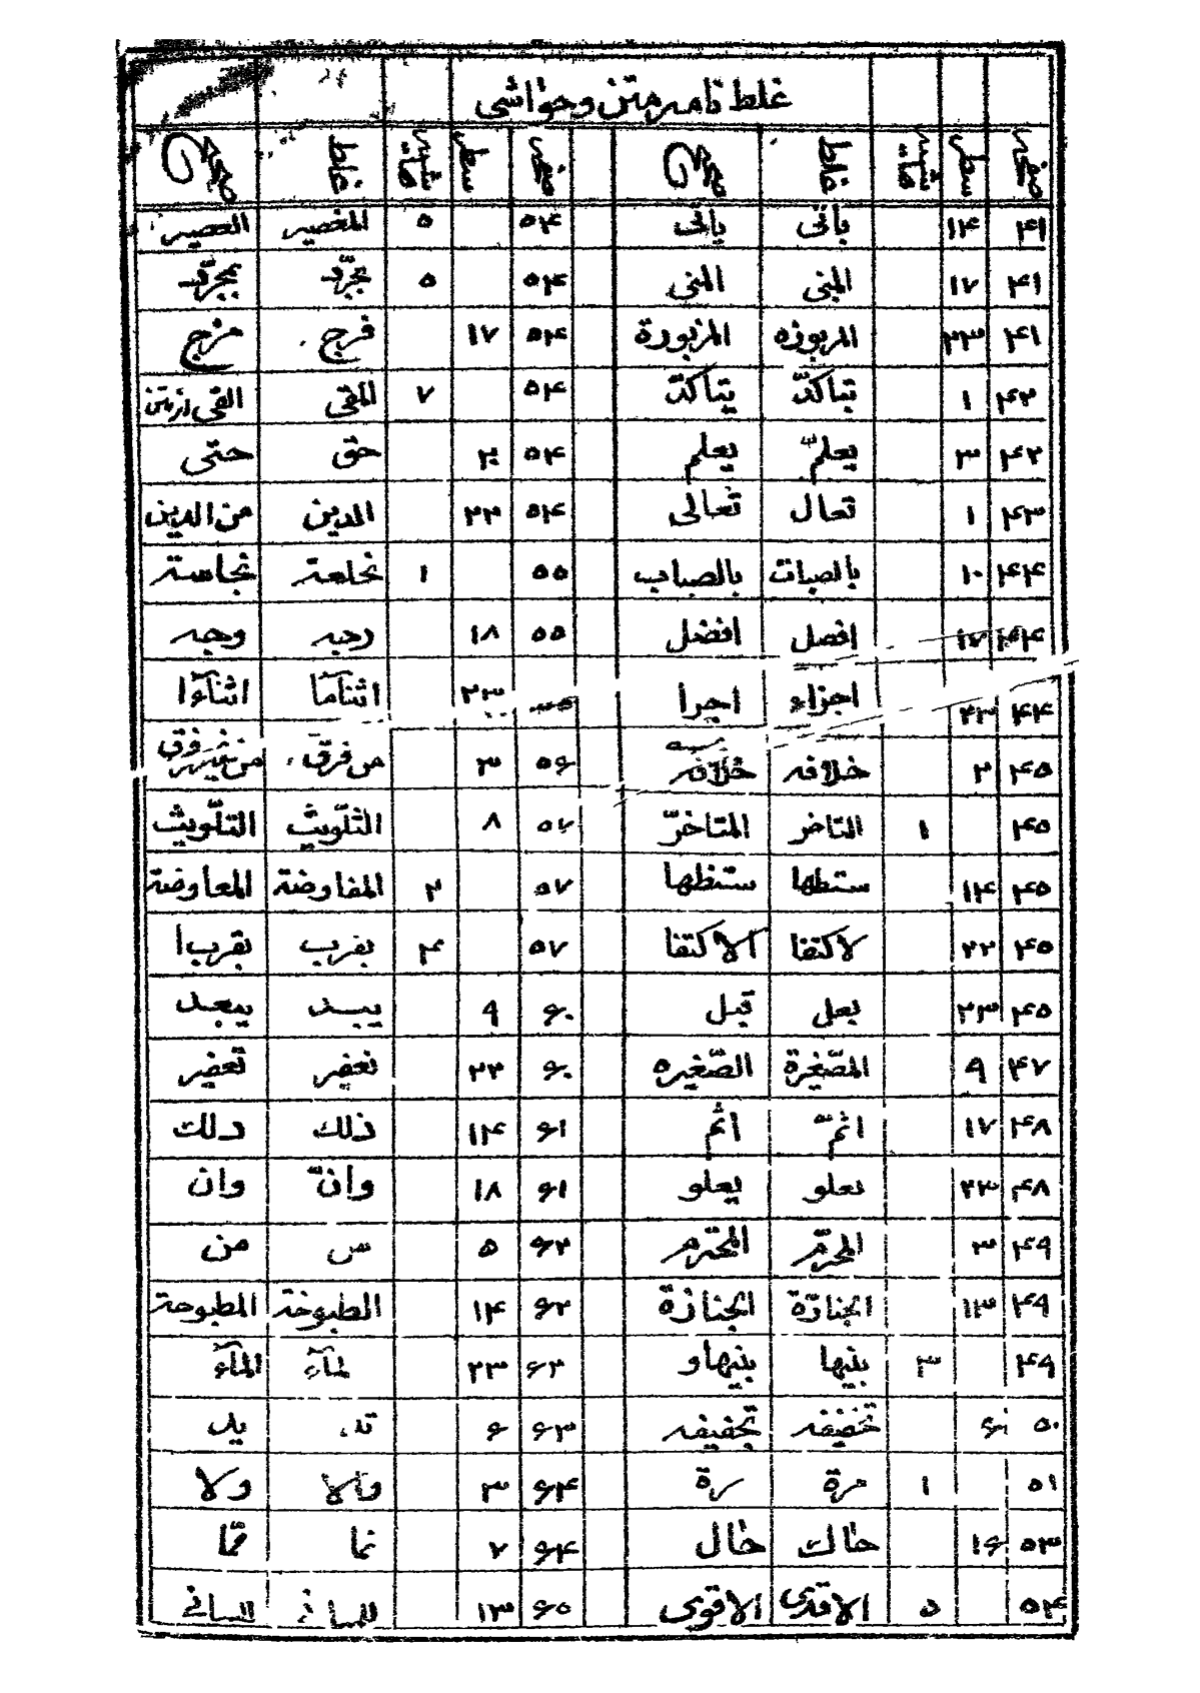 غلط نامه متن و حواشی
صفحه سطر حاشیه غلط صحیح صفحه سطر حاشیه غلط صحیح
۴۱ ۱۴ باتی یاتی ۵۴ ۵ المغصیر العصیر
۴۱ ۱۷ المبنی المنی ۵۴ ۵ بجرّد بمجرّد
۴۱ ۲۳ المربوزه المزبورة ۵۴ ۱۷ فرج مزج
۴۲ ۱ تباکدّ یتاکدّ ۵۴ ۷ المقی القی از متن
۴۲ ۳ یعلمّ یعلم ۵۴ ۲۰ حق حتی
۴۳ ۱ تعال تعالی ۵۴ ۲۲ الدین من الدین
۴۴ ۱۰ بالصبات بالصباب ۵۵ ۱ نجلسة نجاسة
۴۴ ۱۷ افصل افضل ۵۵ ۱۸ رجبه وجبه
۴۴ ۲۳ اجزاء اجرا ۲۳ اثنآما اثنآءا
۴۵ ۲ خلافه خلافه ۵۶ ۳ من فرق من غیر فرق
۴۵ ۱ التاخر المتاخرّ ۵۷ ۸ الثلّویث التلّویث
۴۵ ۱۴ ستطها ستنظها ۵۷ ۲ المفاوضة المعاوضة
۴۵ ۲۲ لاکتفا الاکتفا ۵۷ ۴ بفرب بقرب ا
۴۵ ۲۳ بعل قبل ۶۰ ۹ یبسد یبعد
۴۷ ۹ المصّغرة الصّغیره ۶۰ ۲۲ نعفیر تعفیر
۴۸ ۱۷ اثمّ اثم ۶۱ ۱۴ ذلك دلك
۴۸ ۲۳ بعلو یعلو ۶۱ ۱۸ وانّ وان
۴۹ ۳ المحرّم المحترم ۶۲ ۵ س من
۴۹ ۱۳ الجنادّة الجنازة ۶۲ ۱۴ الطبوخة المطبوخة
۴۹ ۳ بنیها بنیها و ۶۲ ۲۳ لمآء المآء
۵۰ ۶ تخضیفه تخفیفه ۶۳ ۶ ید
۵۱ ۱ مرة رة ۶۴ ۳ والا ولا
۵۳ ۱۶ حاك خال ۶۴ ۷ نما ممّا
۵۴ ۵ الاقدی الاقوی ۶۵ ۱۳